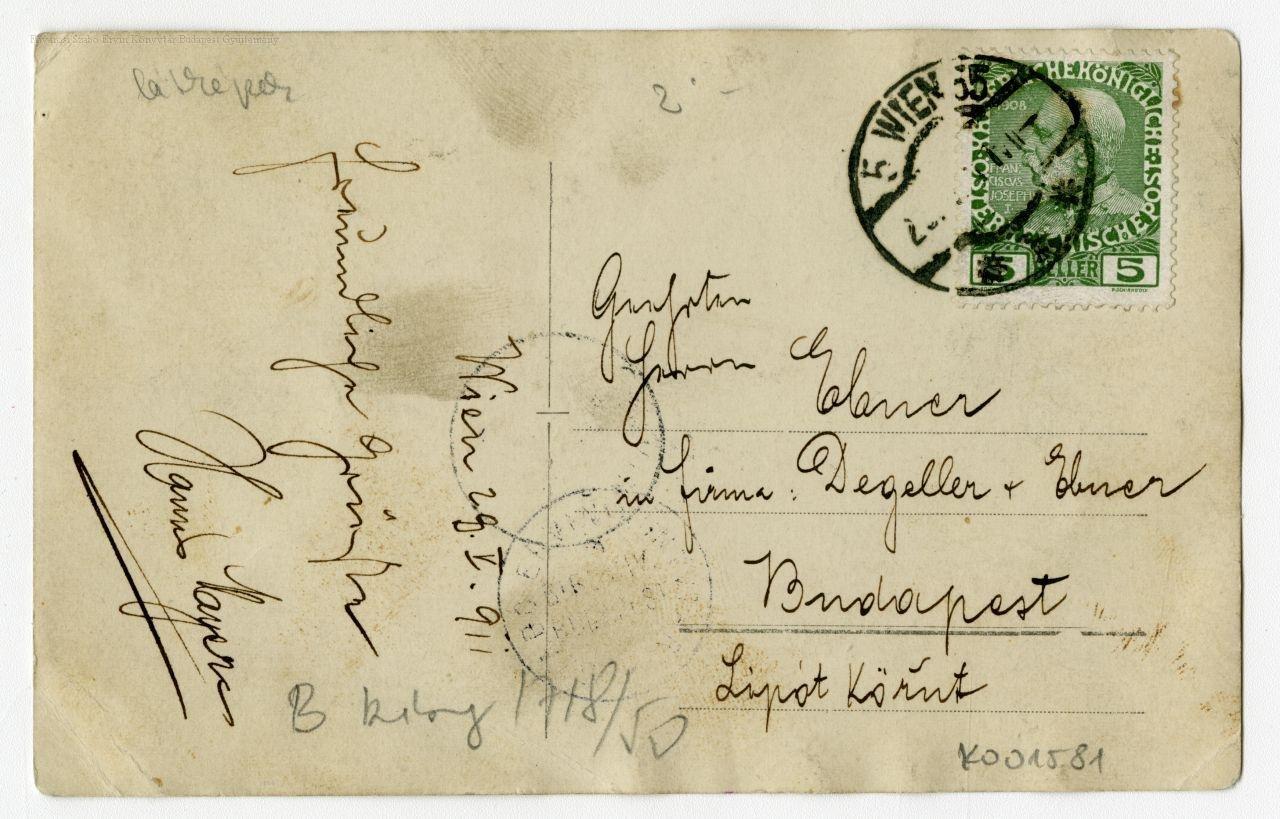 Fővárosi Szabó Ervin Könyvtár Budapest Gyűjtemény
látkép
2
5 WIEN 55
KAISERLICHE KÖNIGLICHE POST
ÖSTERREICHISCHE
1908
FRAN
CISCVS
JOSEPH
I
5 HELLER 5
Freundliche Grüße
Hanns Mayer
Wien 29. V. 911
Geehrten
Herrn Ebner
in firma: Degeller + Ebner
Budapest
Lipót Körut
B 1718/50
K001581